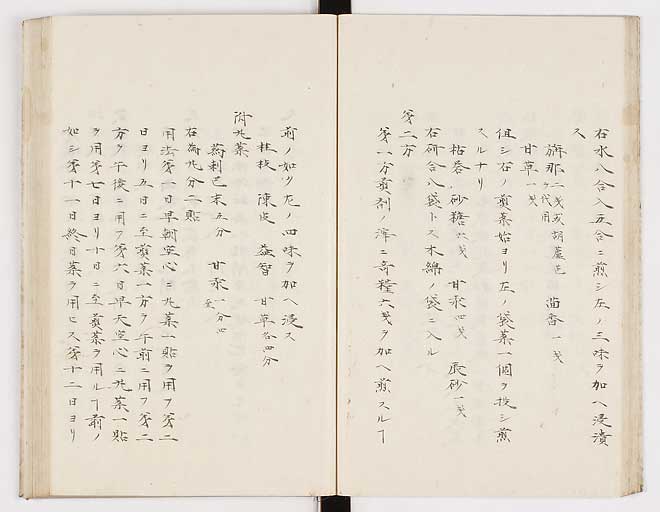 右水八合入五合ニ煎シ左ノ三味ヲ加ヘ浸漬
ス
旃那二戔或胡蘆巴ヲ代用 茴香一戔
甘草一戔
但シ右ノ煎薬始ヨリ左ノ袋薬一個ヲ投シ煎
スルナリ
砂糖六戔 甘汞四戔 辰砂一戔
右研合八袋トス木綿ノ袋ニ入ル
第二方
第一分煎剤ノ滓ニ奇糧六戔ヲ加ヘ煎スルヿ
前ノ如ク左ノ四味ヲ加ヘ浸ス
桂枝 陳皮 益智 甘草各四分
附丸薬
葯剌巴末五分 甘汞一分
右為丸分二貼
用法第一日早朝空心ニ丸薬一貼ヲ用ヲ第二
日ヨリ五日ニ至煎薬一方ヲ午前ニ用フ第二
方ヲ午後ニ用フ第六日早天空心ニ丸薬一貼
ヲ用第七日ヨリ十日ニ至煎薬ヲ用ルヿ前ノ
如シ第十一日終日薬ヲ用ヒス第十二日ヨリ